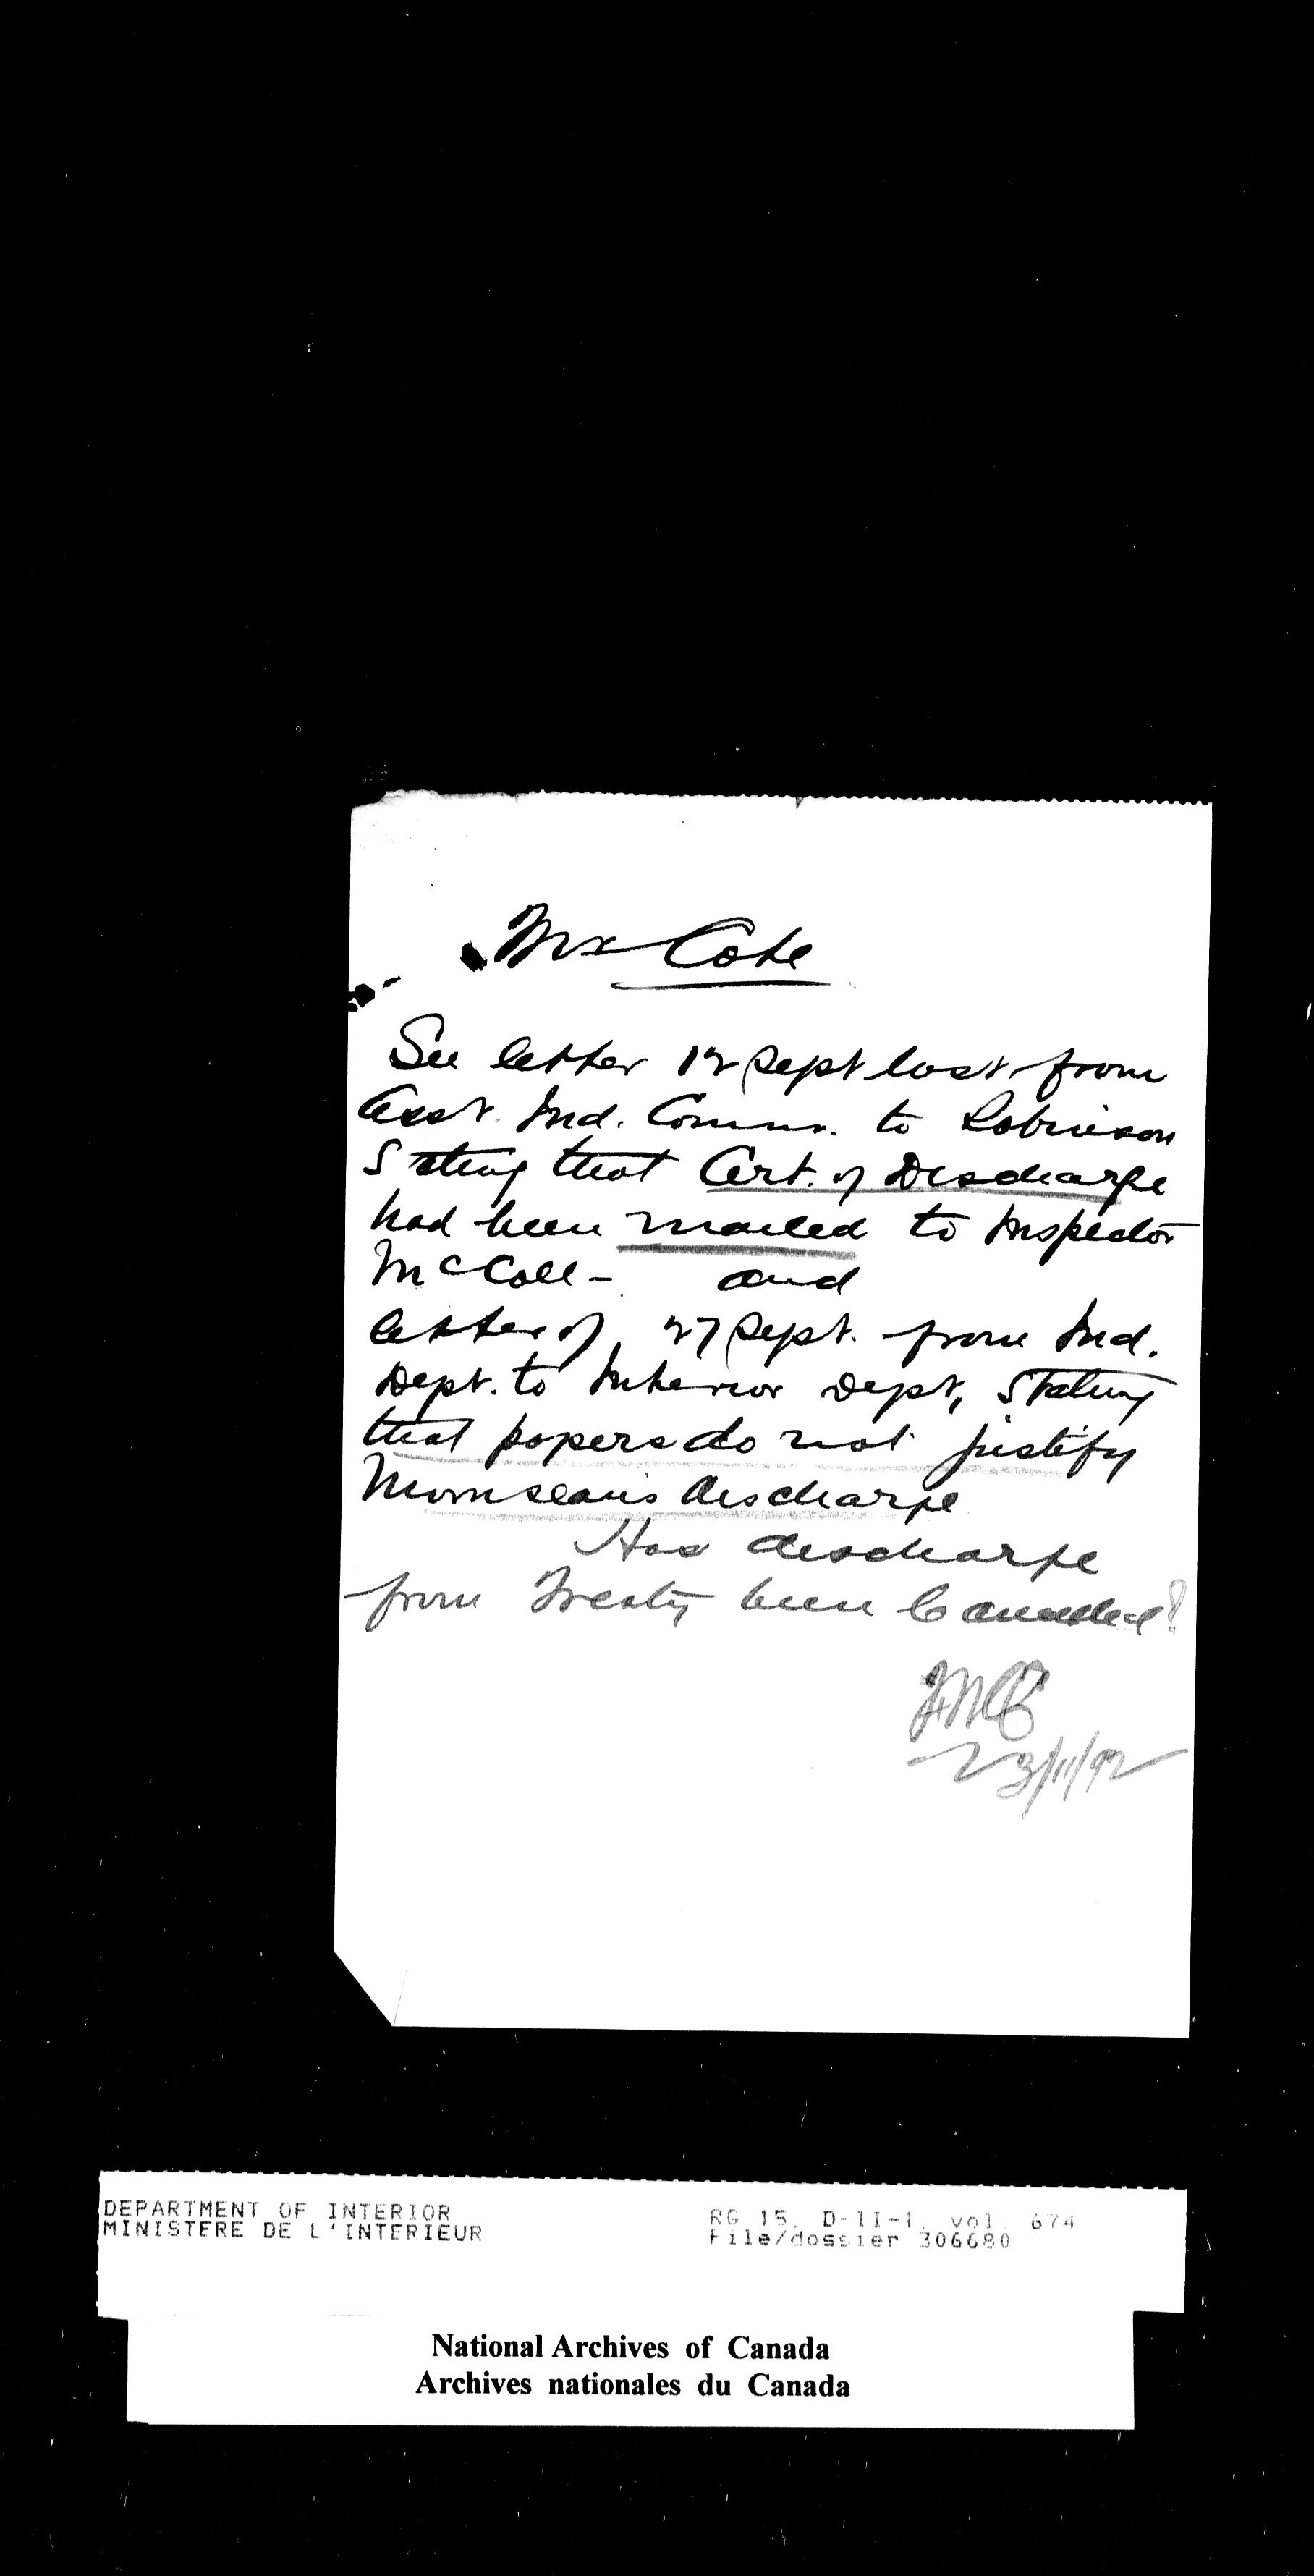 Mr Cote
See letter 12 Sept last from
Asst. Ind. Commr. to Robinson
Stating that Cert. of Discharge
had been mailed to Inspector
McColl - and
letter of 27 Sept. from Ind.
Dept. to Interior Dept, Stating
that papers do not justify
discharge
Has discharge
from Treaty been Cancelled?
23/11/92
DEPARTMENT OF INTERIOR
MINISTERE DE L'INTERIEUR
RG 15, D-II-1, vol. 674
File/dossier 306680
National Archives of Canada
Archives nationales du Canada